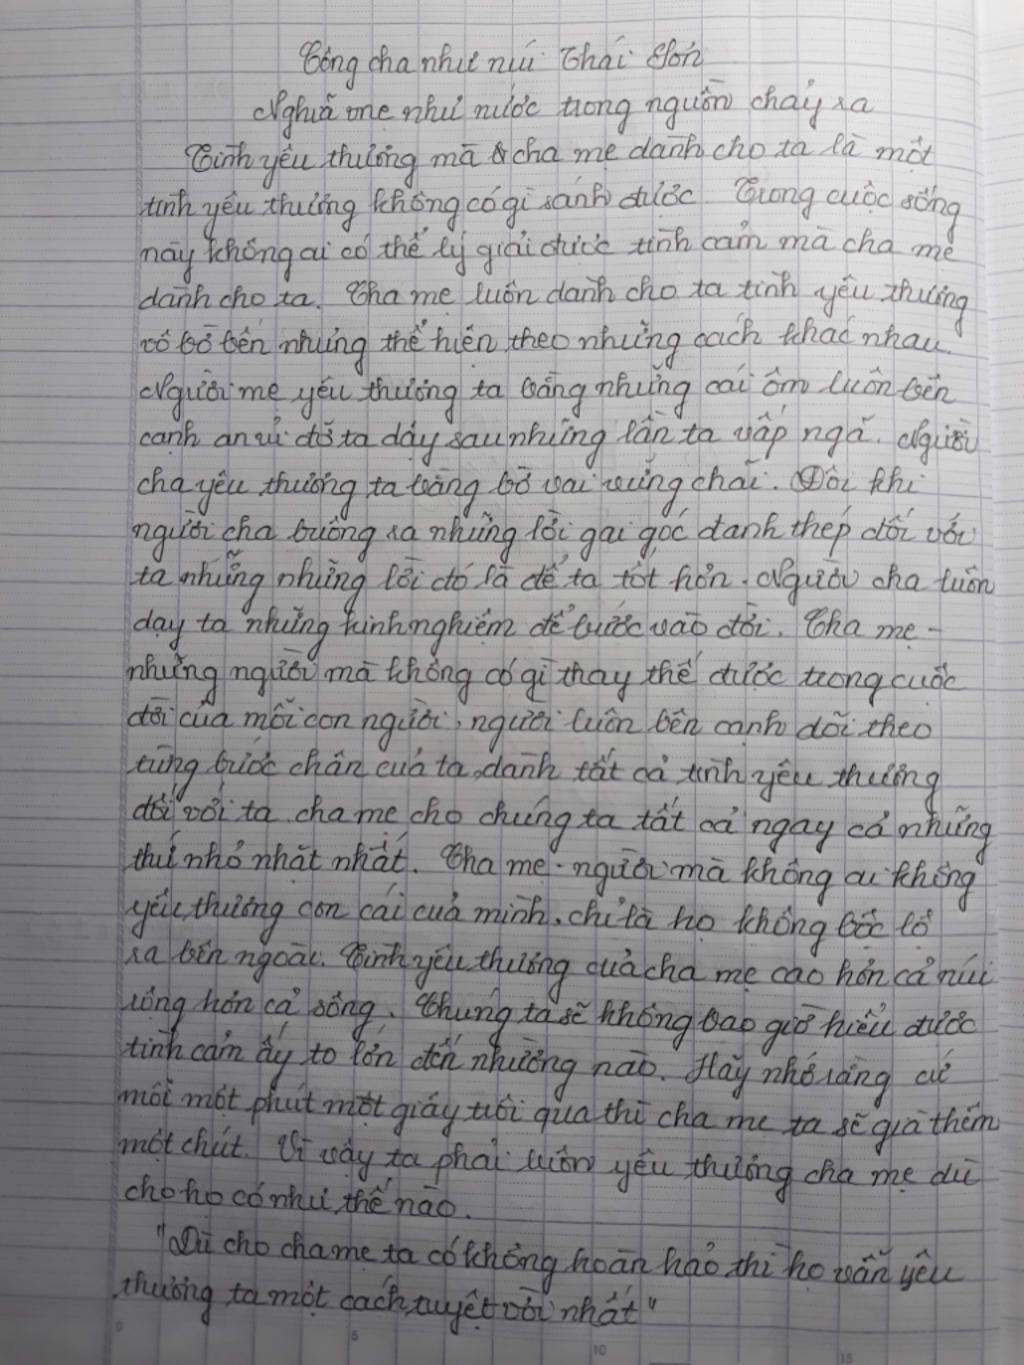 Công cha như núi Thái Sơn
Nghĩa mẹ như nước trong nguồn chảy ra
Tình yêu thương mà cha mẹ dành cho ta là một
tình yêu thương không có gì sánh được. Trong cuộc sống
này không ai có thể lý giải được tình cảm mà cha mẹ
dành cho ta. Cha mẹ luôn dành cho ta tình yêu thương
vô bờ bến nhưng thể hiện theo những cách khác nhau.
Người mẹ yêu thương ta bằng những cái ôm luôn bên
cạnh an ủi đỡ ta dậy sau những lần ta vấp ngã. Người
cha yêu thương ta bằng bờ vai vững chãi. Đôi khi
người cha buông ra những lời gai góc đanh thép đối với
ta nhưng những lời đó là để ta tốt hơn. Người cha luôn
dạy ta những kinh nghiệm để bước vào đời. Cha mẹ -
những người mà không có gì thay thế được trong cuộc
đời của mỗi con người, người luôn bên cạnh dõi theo
từng bước chân của ta, dành tất cả tình yêu thương
đối với ta. cha mẹ cho chúng ta tất cả ngay cả những
thứ nhỏ nhặt nhất. Cha mẹ - người mà không ai không
yêu thương con cái của mình, chỉ là họ không bộc lộ
ra bên ngoài. Tình yêu thương của cha mẹ cao hơn cả núi
rộng hơn cả sông. Chúng ta sẽ không bao giờ hiểu được
tình cảm ấy to lớn đến nhường nào. Hãy nhớ rằng cứ
mỗi một phút một giây trôi qua thì cha mẹ ta sẽ già thêm
một chút. Vì vậy ta phải luôn yêu thương cha mẹ dù
cho họ có như thế nào.
"Dù cho cha mẹ ta có không hoàn hảo thì họ vẫn yêu
thương ta một cách tuyệt vời nhất"
0 5 10 15